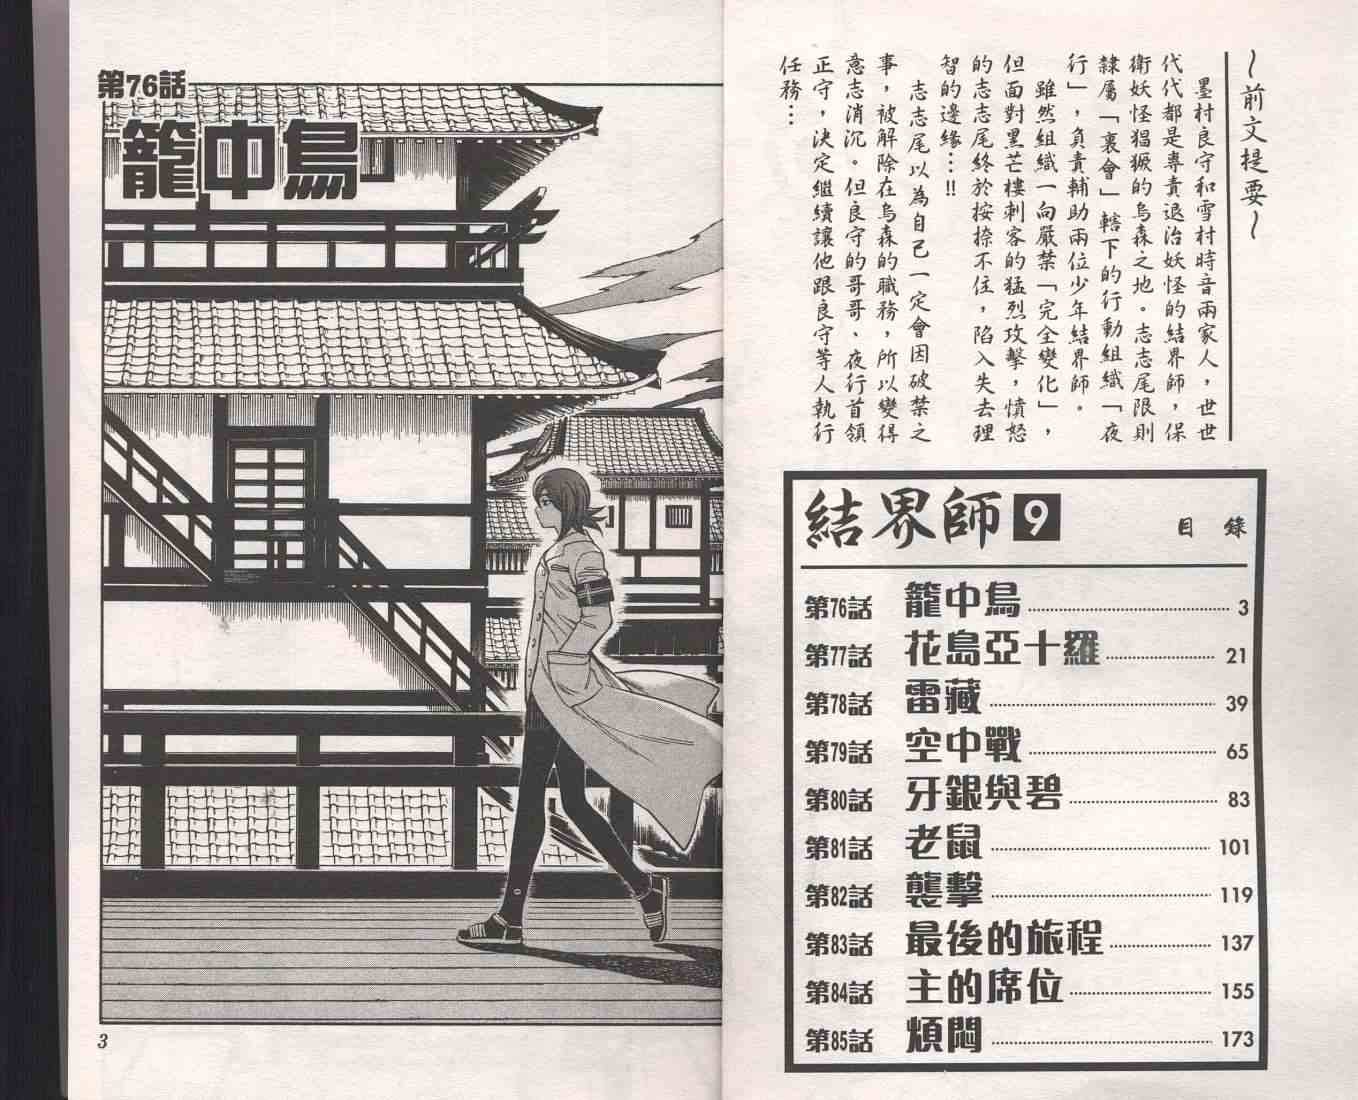 ～前文提要～
墨村良守和雪村時音兩家人，世世
代代都是專責退治妖怪的結界師，保
衛妖怪猖獗的烏森之地。志志尾限則
隸屬「裏會」轄下的行動組織「夜
行」，負責輔助兩位少年結界師。
雖然組織一向嚴禁「完全變化」，
但面對黑芒樓刺客的猛烈攻擊，憤怒
的志志尾終於按捺不住，陷入失去理
智的邊緣…!!
志志尾以為自己一定會因破禁之
事，被解除在烏森的職務，所以變得
意志消沉。但良守的哥哥、夜行首領
正守，決定繼續讓他跟良守等人執行
任務…
結界師 9 目錄
第76話 籠中鳥 3
第77話 花島亞十羅 21
第78話 雷藏 39
第79話 空中戰 65
第80話 牙銀與碧 83
第81話 老鼠 101
第82話 襲擊 119
第83話 最後的旅程 137
第84話 主的席位 155
第85話 煩悶 173
第76話
籠中鳥
3